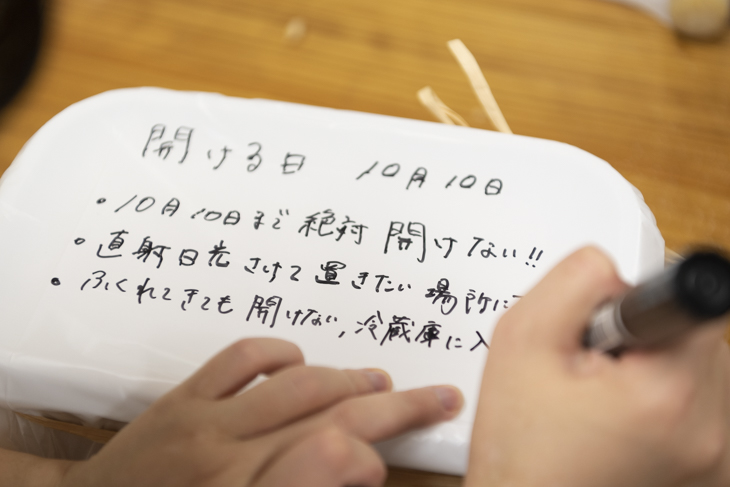 開ける日 10月10日
・10月10日まで 絶対 開けない!!
・直射日光 さけて 置きたい 場所に
・ふくれてきても 開けない, 冷蔵庫に入